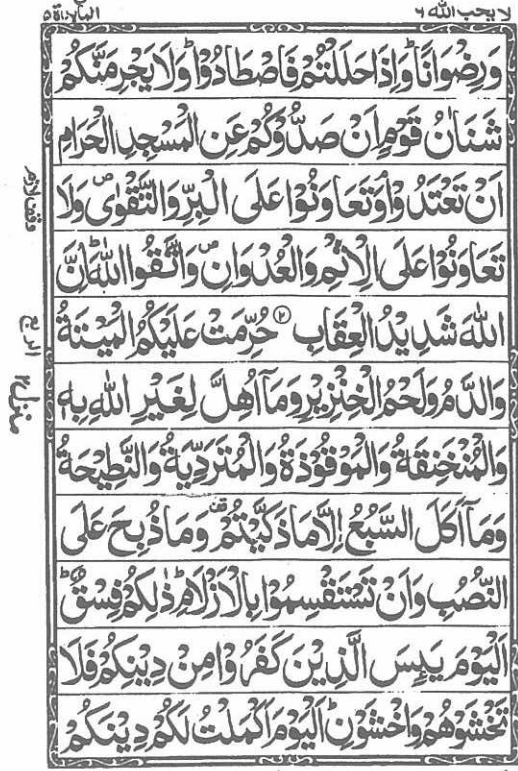 لا يحب الله ٦
المائدة ٥
وَرِضْوَانًا ؕ وَاِذَا حَلَلْتُمْ فَاصْطَادُوْا ؕ وَلَا يَجْرِمَنَّكُمْ
شَنَاٰنُ قَوْمٍ اَنْ صَدُّوْكُمْ عَنِ الْمَسْجِدِ الْحَرَامِ
اَنْ تَعْتَدُوْا ۘ وَتَعَاوَنُوْا عَلَى الْبِرِّ وَالتَّقْوٰى ۪ وَلَا
تَعَاوَنُوْا عَلَى الْاِثْمِ وَالْعُدْوَانِ ۪ وَاتَّقُوا اللّٰهَ ؕ اِنَّ
اللّٰهَ شَدِيْدُ الْعِقَابِ ۝٢ حُرِّمَتْ عَلَيْكُمُ الْمَيْتَةُ
وَالدَّمُ وَلَحْمُ الْخِنْزِيْرِ وَمَاۤ اُهِلَّ لِغَيْرِ اللّٰهِ بِهٖ
وَالْمُنْخَنِقَةُ وَالْمَوْقُوْذَةُ وَالْمُتَرَدِّيَةُ وَالنَّطِيْحَةُ
وَمَاۤ اَكَلَ السَّبُعُ اِلَّا مَا ذَكَّيْتُمْ ۫ وَمَا ذُبِحَ عَلَى
النُّصُبِ وَاَنْ تَسْتَقْسِمُوْا بِالْاَزْلَامِ ؕ ذٰلِكُمْ فِسْقٌ ؕ
اَلْيَوْمَ يَىِٕسَ الَّذِيْنَ كَفَرُوْا مِنْ دِيْنِكُمْ فَلَا
تَخْشَوْهُمْ وَاخْشَوْنِ ؕ اَلْيَوْمَ اَكْمَلْتُ لَكُمْ دِيْنَكُمْ
وقف لازم
منزل ٢